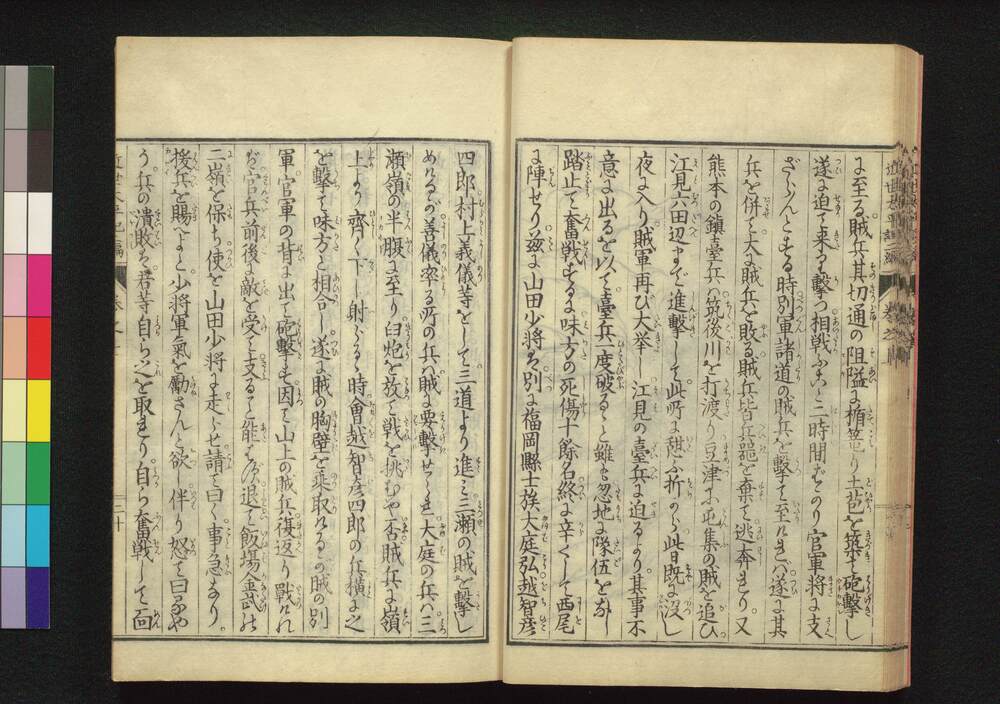 に至る賊兵其切通の阻隘に楯篭り土苞を築て砲撃し
遂に迫て来り撃つ相戦ふこと二時間ばかり官軍将に支
ざらんとする時別軍諸道の賊兵を撃て至ければ遂に其
兵を併て大に賊兵を敗る賊兵皆兵器を棄て逃奔せり又
熊本の鎮臺兵は筑後川を打渡り豆津に屯集の賊を追ひ
江見六田辺まで進撃して此所に憩ふ折から此日既に没し
夜に入り賊軍再び大挙し江見の臺兵に迫るより其事不
意に出るを以て臺兵一度破るると雖も忽地に隊伍を
踏止て奮戦するに味方の死傷十餘名終に辛くして西尾
に陣せり茲に山田少将は別に福岡縣士族大庭弘越智彦
四郎村上義儀等をして三道より進み三瀬の賊を撃し
めけるが善儀率る所の兵は賊に要撃せられ大庭の兵は三
瀬嶺の半腹に至り臼炮を放て戦を挑むや否賊兵は嶺
上より齊く下し射ぐるる時會越智彦四郎の兵横に之
を撃て味方と相合し遂に賊の胸壁を乗取ける此賊の別
軍官軍の背に出て砲撃す因て山上の賊兵復返り戦けれ
ば官兵前後に敵を受て支ること能はず退て飯場金武の
二嶺を保ち使を山田少将に走らせ請て曰く事急なり
援兵を賜へよと少将軍氣を勵さんと欲し佯り怒て曰
う兵の潰敗は君等自ら之を取れり自ら奮戦して面
近世太平記二編
巻之
二十